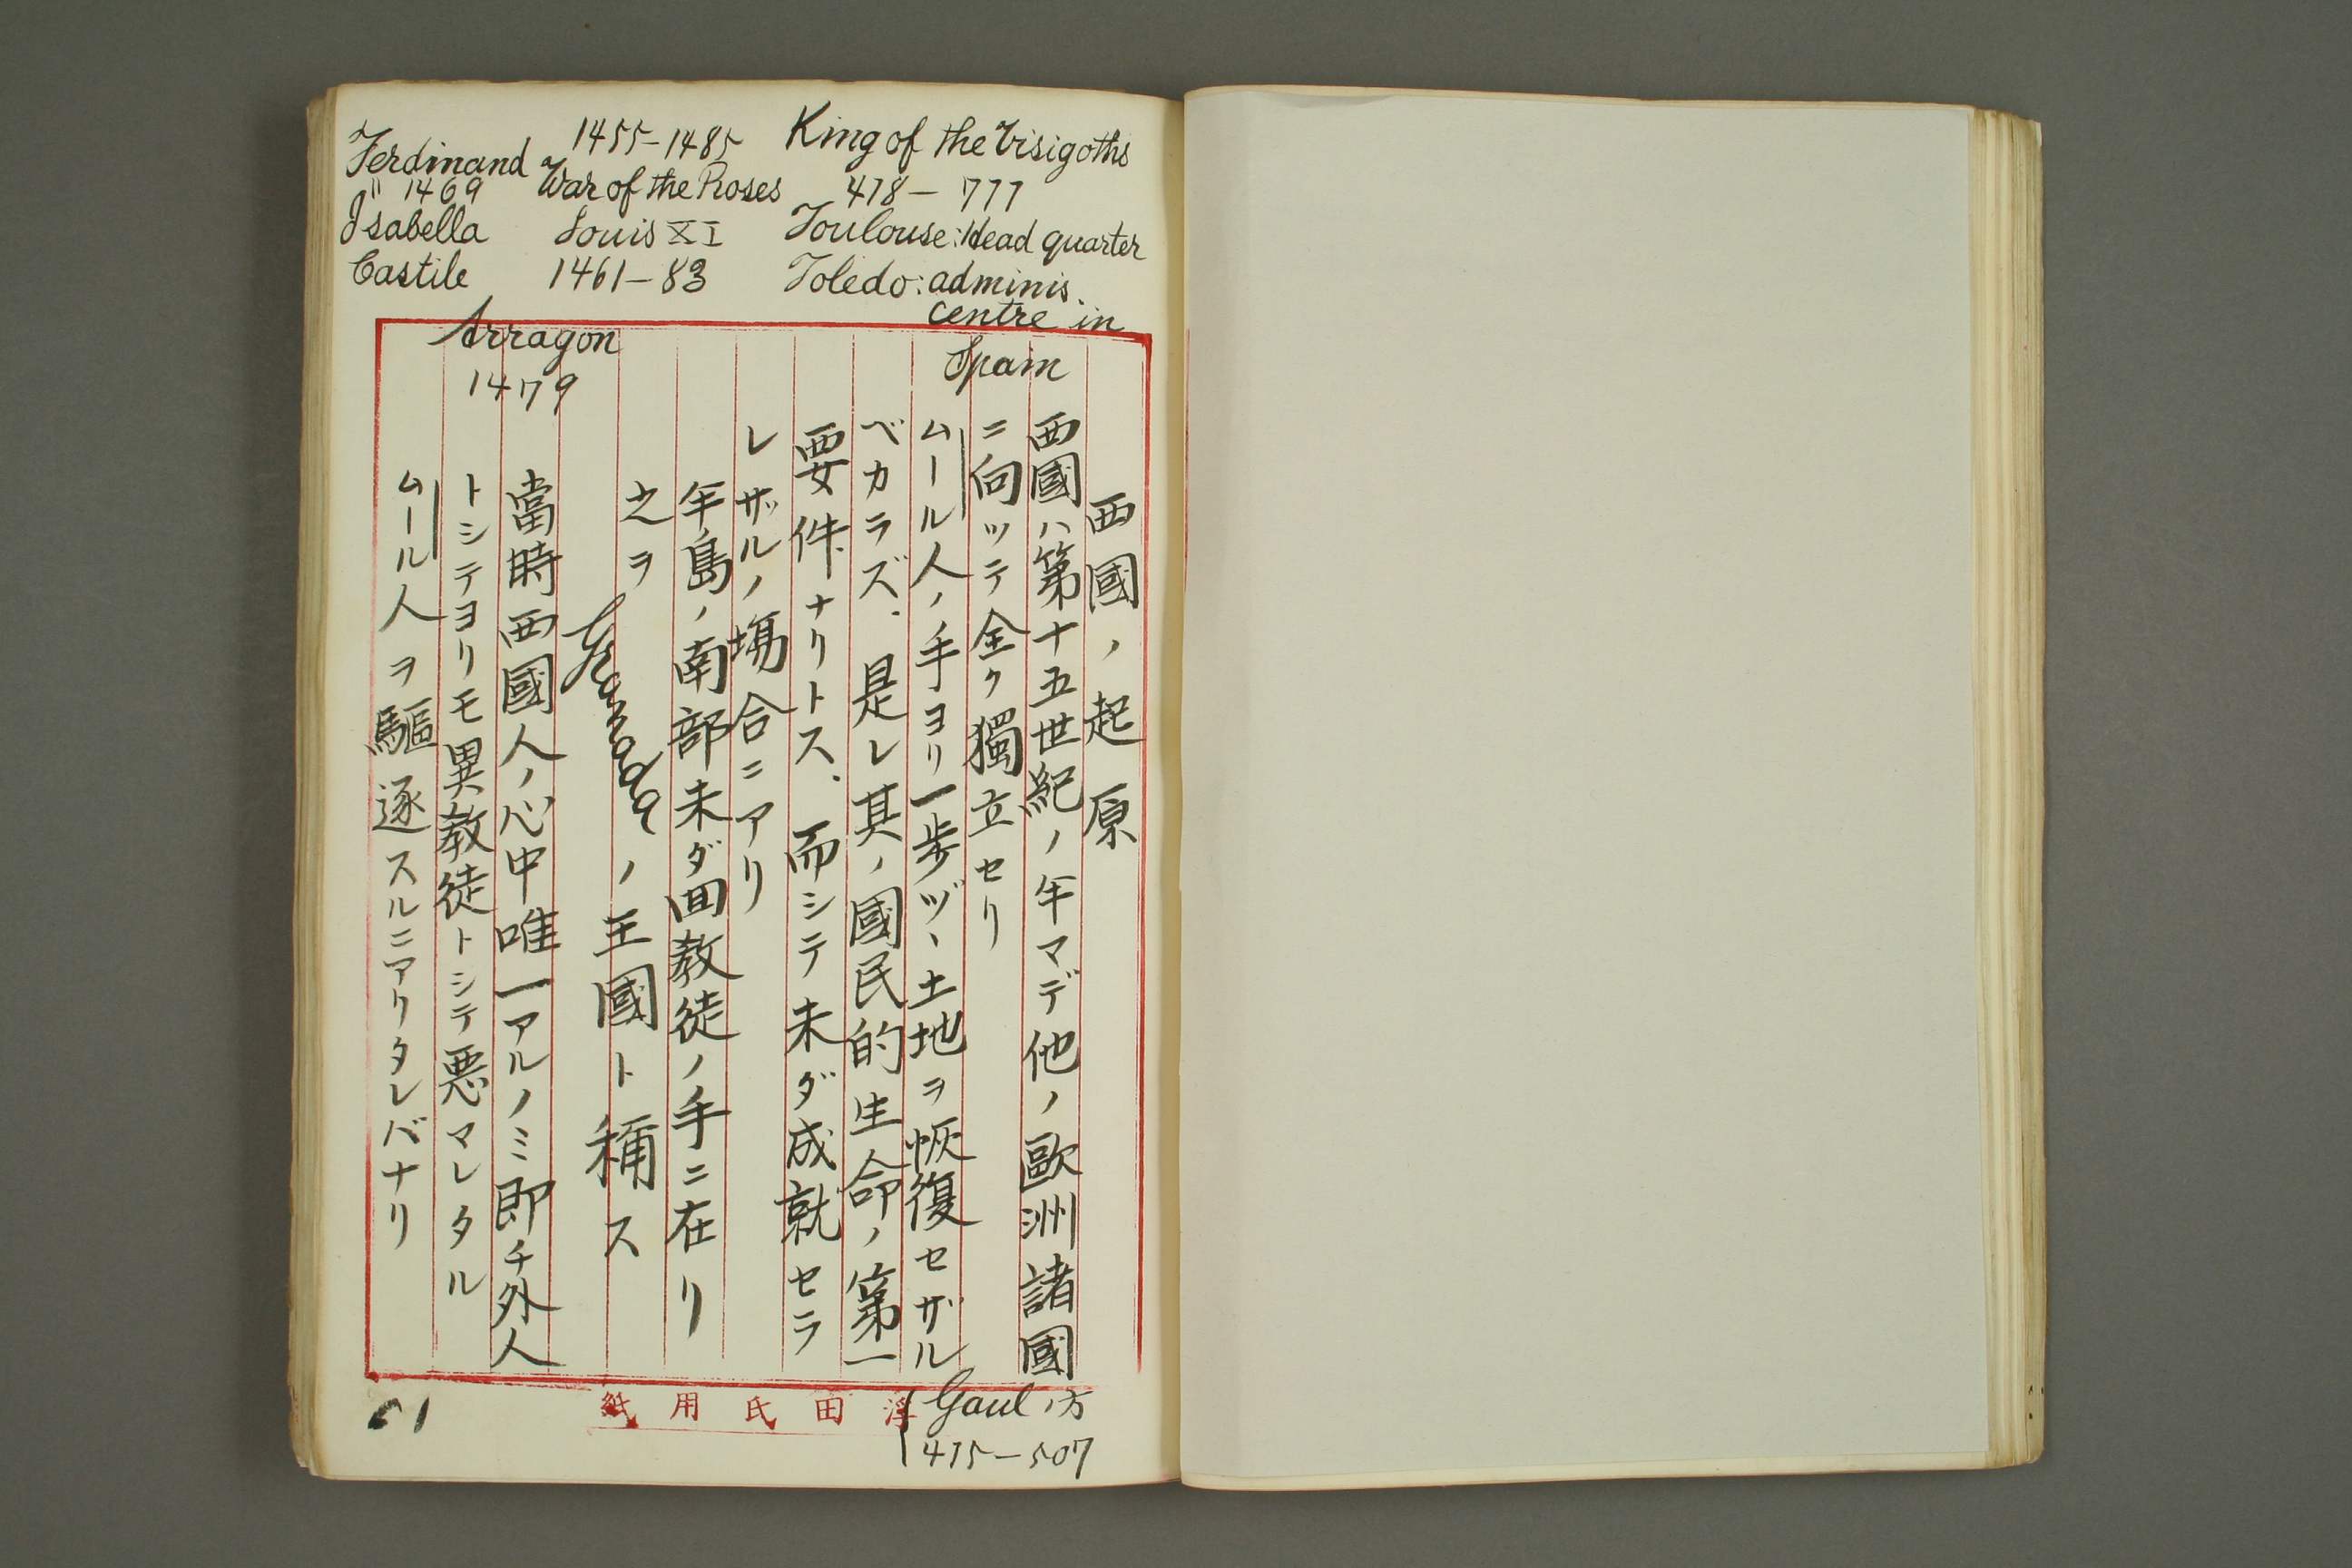 King of the Visigoths
418－711
Toulouse: Head quarter
Toledo: adminis.
centre in
Spain
1455－1485
War of the Roses
Louis XI
1461－83
Ferdinand
〃 1469
Isabella
Castile
Arragon
1479
西國ノ起原
西國ハ第十五世紀ノ年マデ他ノ歐洲諸國
ニ向ッテ全ク獨立セリ
ムール人ノ手ヨリ一歩ヅヽ土地ヲ恢復セザル
ベカラズ．是レ其ノ國民的生命ノ第一
要件ナリトス．而シテ未ダ成就セラ
レザルノ塲合ニアリ
年島ノ南部未ダ回教徒ノ手ニ在リ
之ヲ
Granadaノ王國ト稱ス
當時西國人ノ心中唯一アルノミ即チ外人
トシテヨリモ異教徒トシテ悪マレタル
ムール人ヲ驅逐スルニアリタレバナリ
Gaulノ方
415－507
浮田氏用紙
61